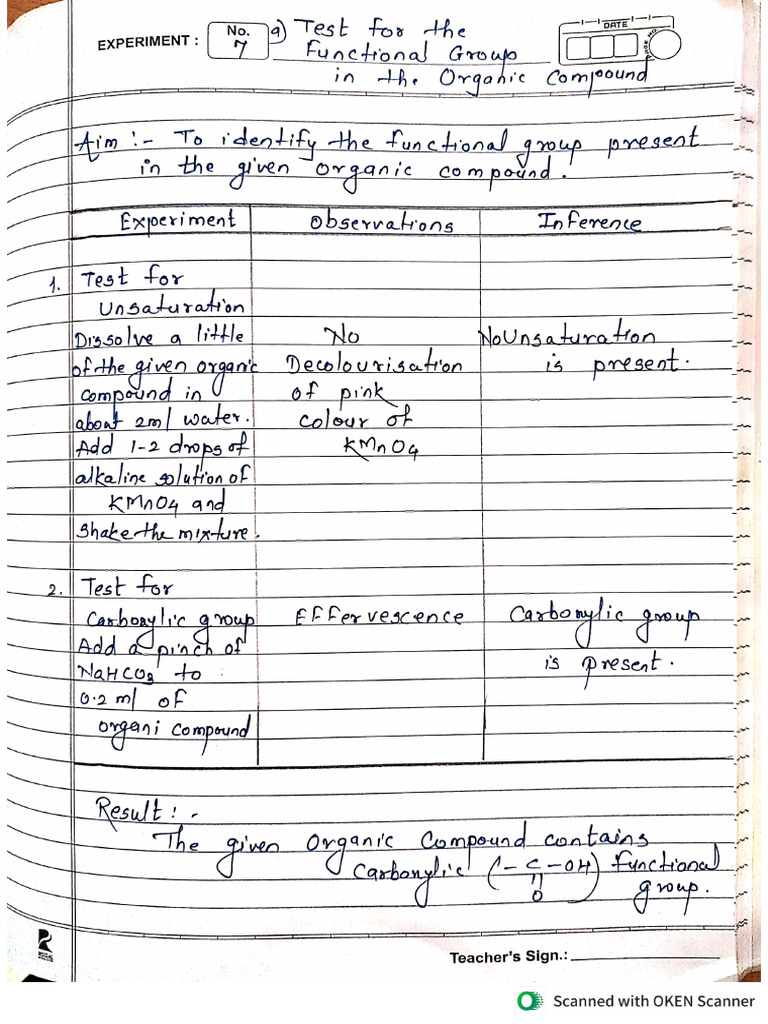 EXPERIMENT : No. 7 a) Test for the
Functional Group
in the Organic Compound
DATE
PAGE NO.
Aim :- To identify the functional group present
in the given organic compound.
Experiment Observations Inference
1. Test for
Unsaturation
Dissolve a little No No Unsaturation
of the given organic Decolourisation is present.
compound in of pink
about 2ml water. colour of
Add 1-2 drops of KMnO4
alkaline solution of
KMnO4 and
Shake the mixture.
2. Test for
Carbonylic group Effervescence Carbonylic group
Add a pinch of
NaHCO3 to is present.
0.2 ml of
organi compound
Result : -
The given Organic Compound contains
Carbonylic (-C-OH) functional
||
O
group.
Teacher's Sign.:
Scanned with OKEN Scanner